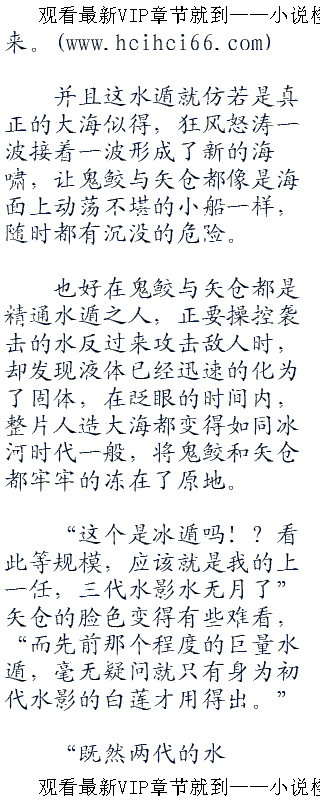 观看最新VIP章节就到——小说检
来。(www.hcihci66.com)
并且这水遁就仿若是真
正的大海似得，狂风怒涛一
波接着一波形成了新的海
啸，让鬼鲛与矢仓都像是海
面上动荡不堪的小船一样，
随时都有沉没的危险。
也好在鬼鲛与矢仓都是
精通水遁之人，正要操控袭
击的水反过来攻击敌人时，
却发现液体已经迅速的化为
了固体，在眨眼的时间内，
整片人造大海都变得如同冰
河时代一般，将鬼鲛和矢仓
都牢牢的冻在了原地。
“这个是冰遁吗！？看
此等规模，应该就是我的上
一任，三代水影水无月了”
矢仓的脸色变得有些难看，
“而先前那个程度的巨量水
遁，毫无疑问就只有身为初
代水影的白莲才用得出。”
“既然两代的水
观看最新VIP章节就到——小说检